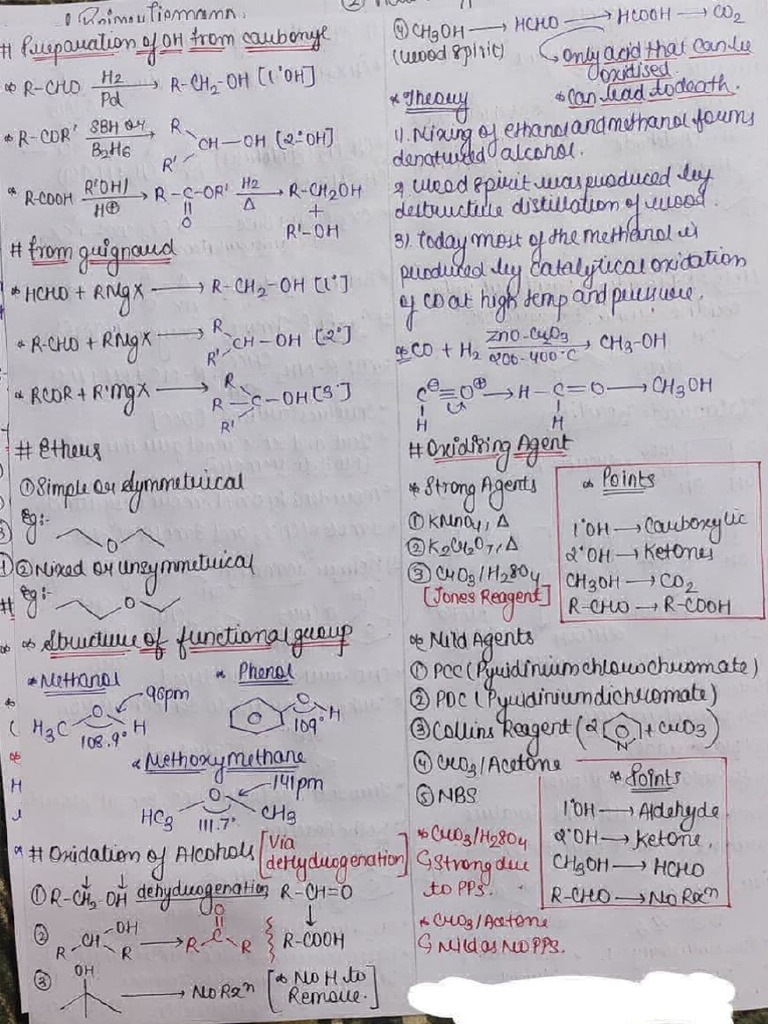 # Preparation of OH from carbonyl
* R-CHO H2/Pd → R-CH2-OH [1°OH]
* R-COR' SBH or/B2H6 → R R' CH-OH [2°OH]
* R-COOH R'OH/H⊕ → R-C-OR' H2/Δ → R-CH2OH
O + R'-OH
# from grignard
* HCHO + RMgX → R-CH2-OH [1°]
* R-CHO + RMgX → R R' CH-OH [2°]
* RCOR + R'MgX → R R R' C-OH [3°]
# Ethers
① Simple or Symmetrical
Eg:-
O
② Mixed or unsymmetrical
Eg:-
O
* Structure of functional group
* Methanol
96pm
H3C O H
108.9°
* Phenol
O H
109°
* Methoxymethane
141pm
O
HC3 CH3
111.7°
# Oxidation of Alcohols [Via dehydrogenation]
① R-CH2-OH dehydrogenation R-CH=O
↓
R-COOH
② R-CH-R OH → R-C-R O
③ OH → No Rxn [* No H to Remove.]
④ CH3OH → HCHO → HCOOH → CO2
(wood spirit)
Only acid that can be oxidised.
* Can lead to death.
* Theory
1). Mixing of ethanol and methanol forms
denatured alcohol.
2. Wood spirit was produced by
destructive distillation of wood.
3). Today most of the methanol is
produced by catalytical oxidation
of CO at high temp and pressure.
* CO + H2 ZnO-CrO3/200-400°C → CH3-OH
C⊖≡O⊕ → H-C=O → CH3OH
H H
# Oxidising Agent
* Strong Agents
① KMnO4, Δ
② K2Cr2O7, Δ
③ CrO3/H2SO4
[Jones Reagent]
* Points
1°OH → Carboxylic
2°OH → Ketones
CH3OH → CO2
R-CHO → R-COOH
* Mild Agents
① PCC (Pyridinium chlorochromate)
② PDC (Pyridinium dichromate)
③ Collins Reagent (2 N + CrO3)
④ CrO3/Acetone
⑤ NBS
* CrO3/H2SO4
↳ Strong due
to PPS.
* CrO3/Acetone
↳ Mild as No PPS.
* Points
1°OH → Aldehyde
2°OH → Ketone.
CH3OH → HCHO
R-CHO → No Rxn